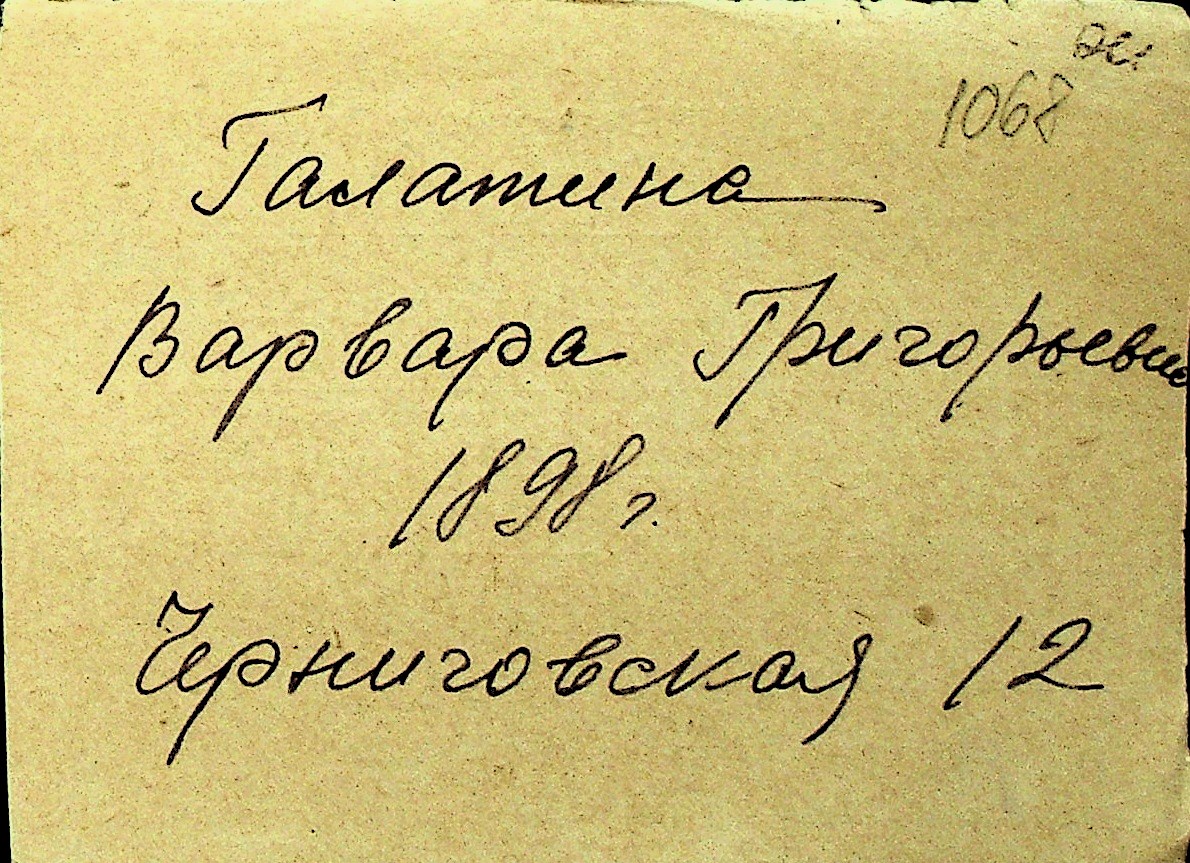 1068
Галатина
Варвара Григорьевна
1898 г.
Черниговская 12